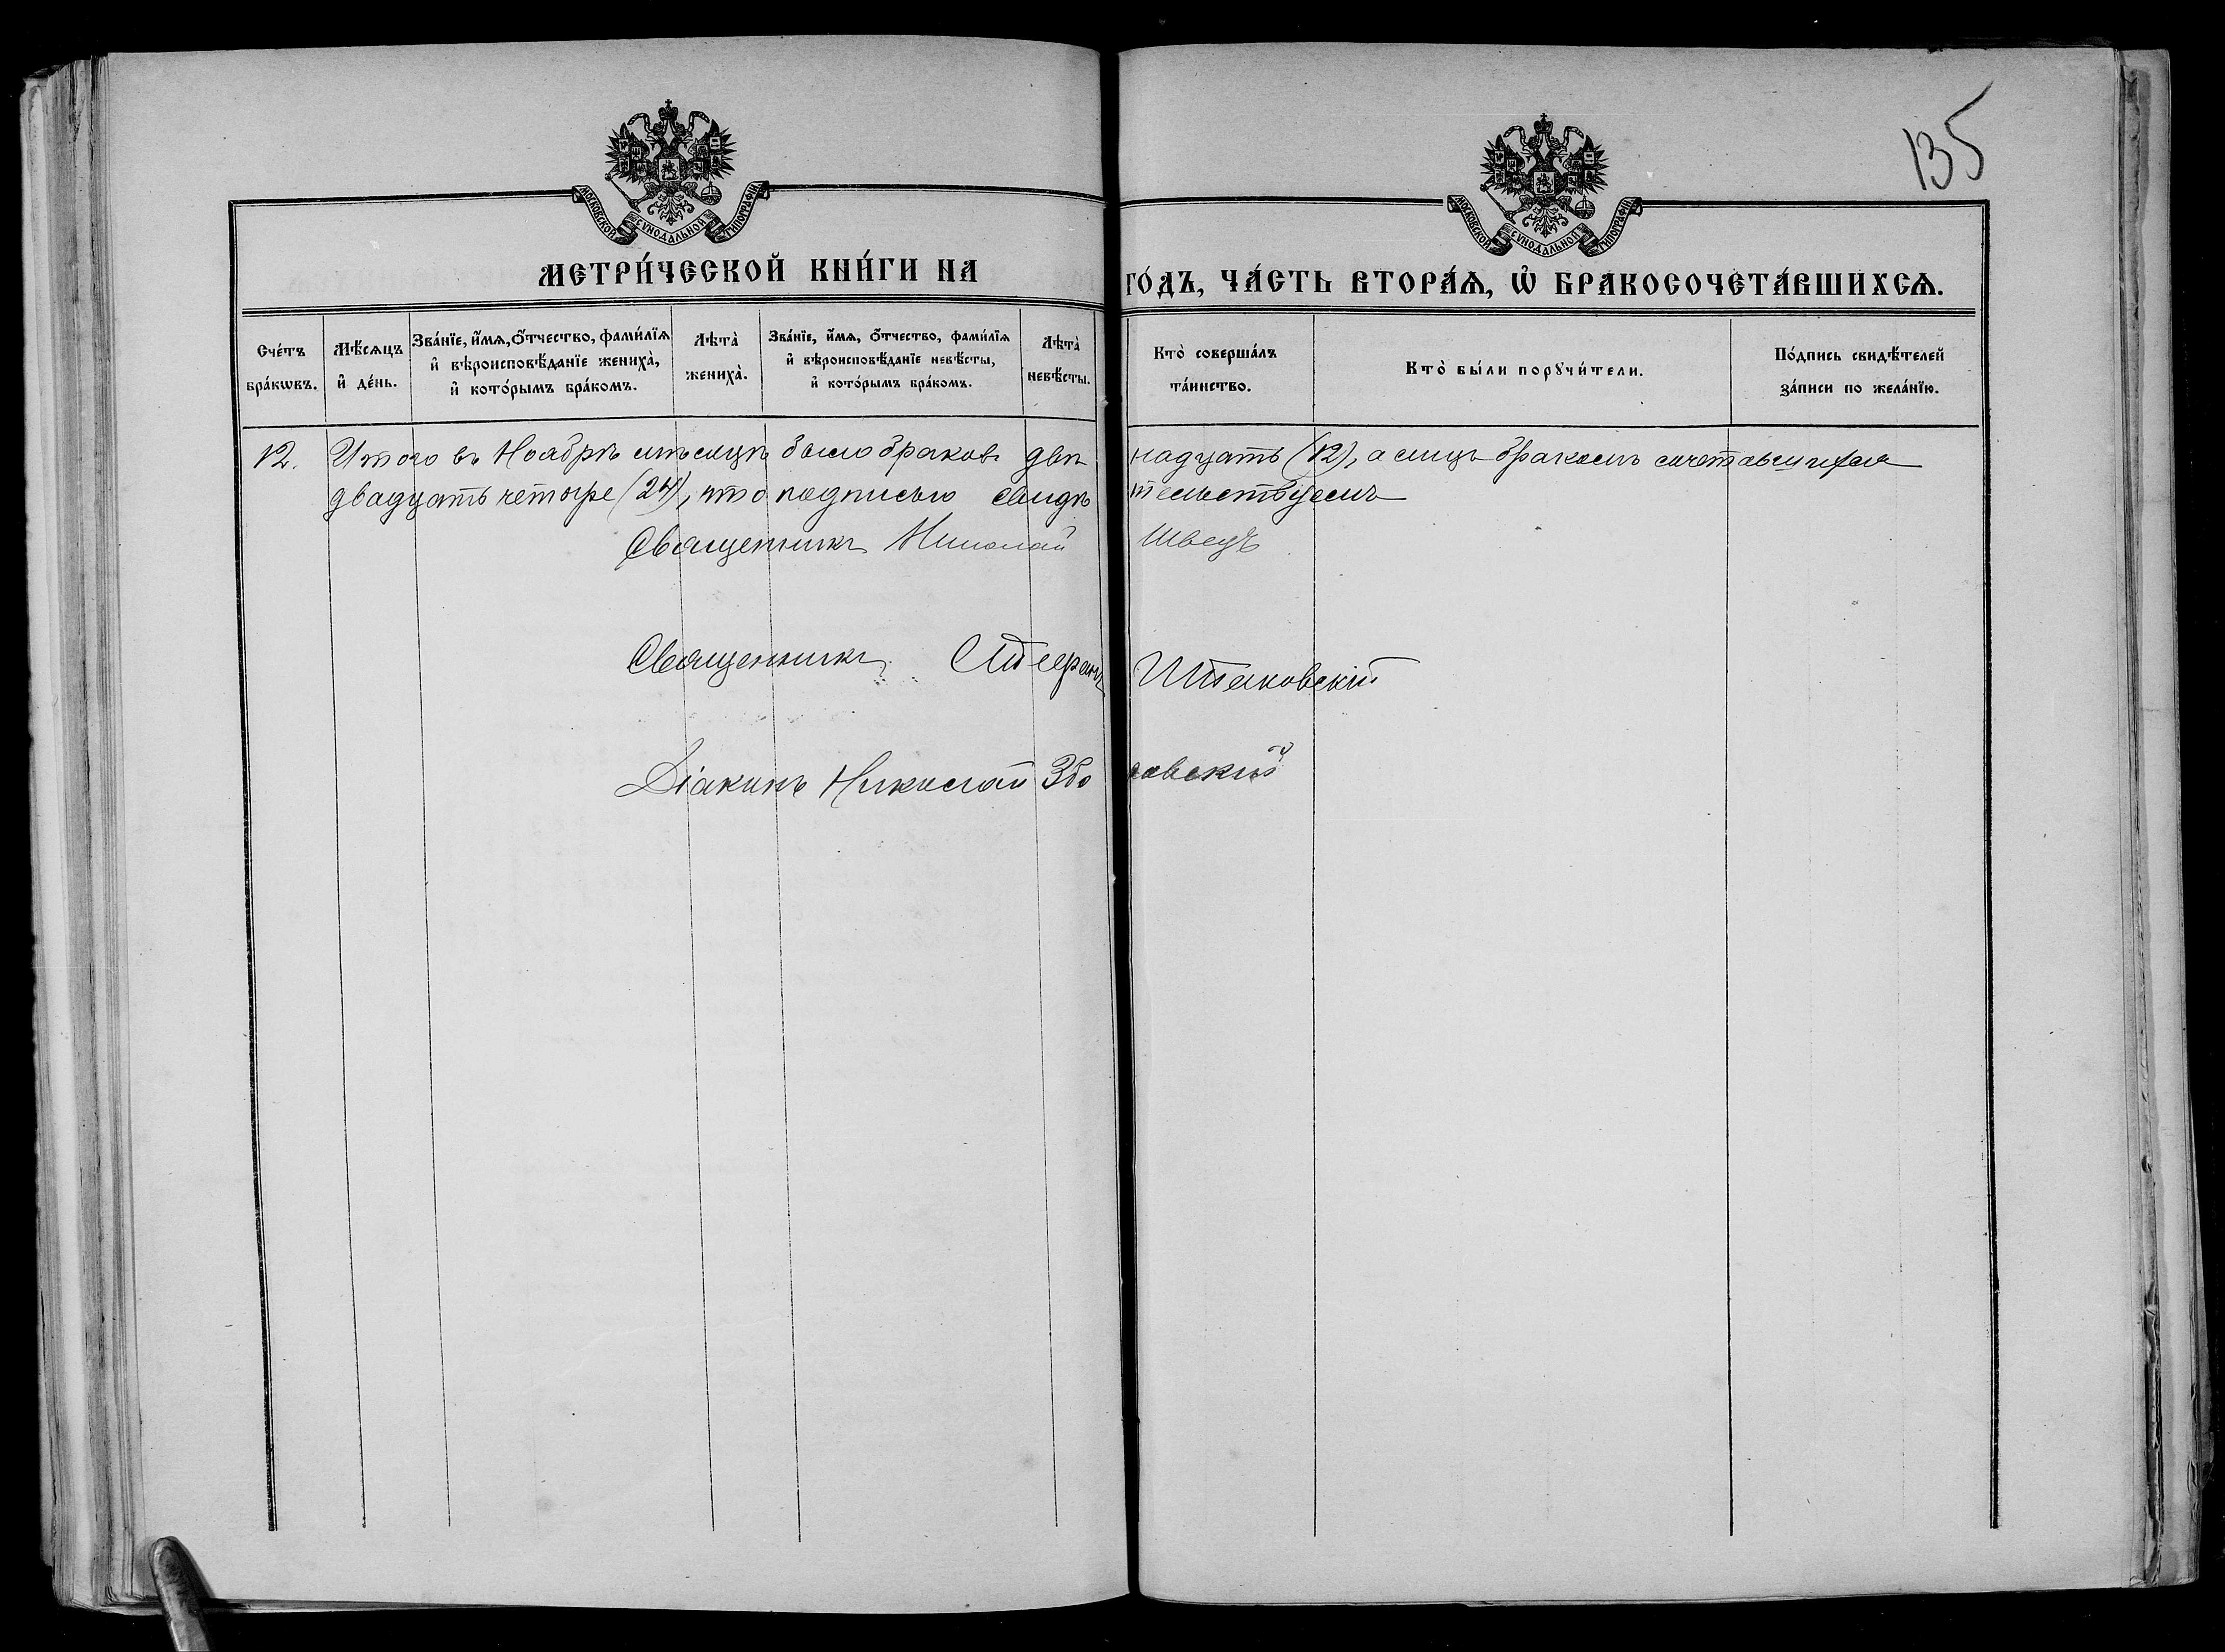 135
МОСКОВСКОЙ СУНОДАЛЬНОЙ ТИПОГРАФІИ
МОСКОВСКОЙ СУНОДАЛЬНОЙ ТИПОГРАФІИ
МЕТРИ́ЧЕСКОЙ КНИ́ГИ НА ГО́ДЪ, ЧА́СТЬ ВТОРА́Ѧ, Ѽ БРАКОСОЧЕТА́ВШИХСѦ.
Сче́тъ бра́кѡвъ.
Мѣ́сѧцъ и҆ де́нь.
Зва́нїе, и҆́мѧ, ѻ҆́тчество, фами́лїѧ и҆ вѣроисповѣ́данїе жениха̀, и҆ кото́рымъ бра́комъ.
Лѣта̀ жениха̀.
Зва́нїе, и҆́мѧ, ѻ҆́тчество, фами́лїѧ и҆ вѣроисповѣ́данїе невѣ́сты, и҆ кото́рымъ бра́комъ.
Лѣта̀ невѣ́сты.
Кто̀ соверша́лъ та́инство.
Кто̀ бы́ли порꙋчи́тели.
По́дпись свидѣ́телей за́писи по жела́нїю.
12. Итого въ Ноябрѣ мѣсяцѣ было браковъ двѣнадцать (12), а лицъ бракомъ сочетавшихся
двадцать четыре (24), что подписью свидѣтельствуемъ
Священникъ Николай Швецъ
Священникъ Стефанъ
Діаконъ Николай